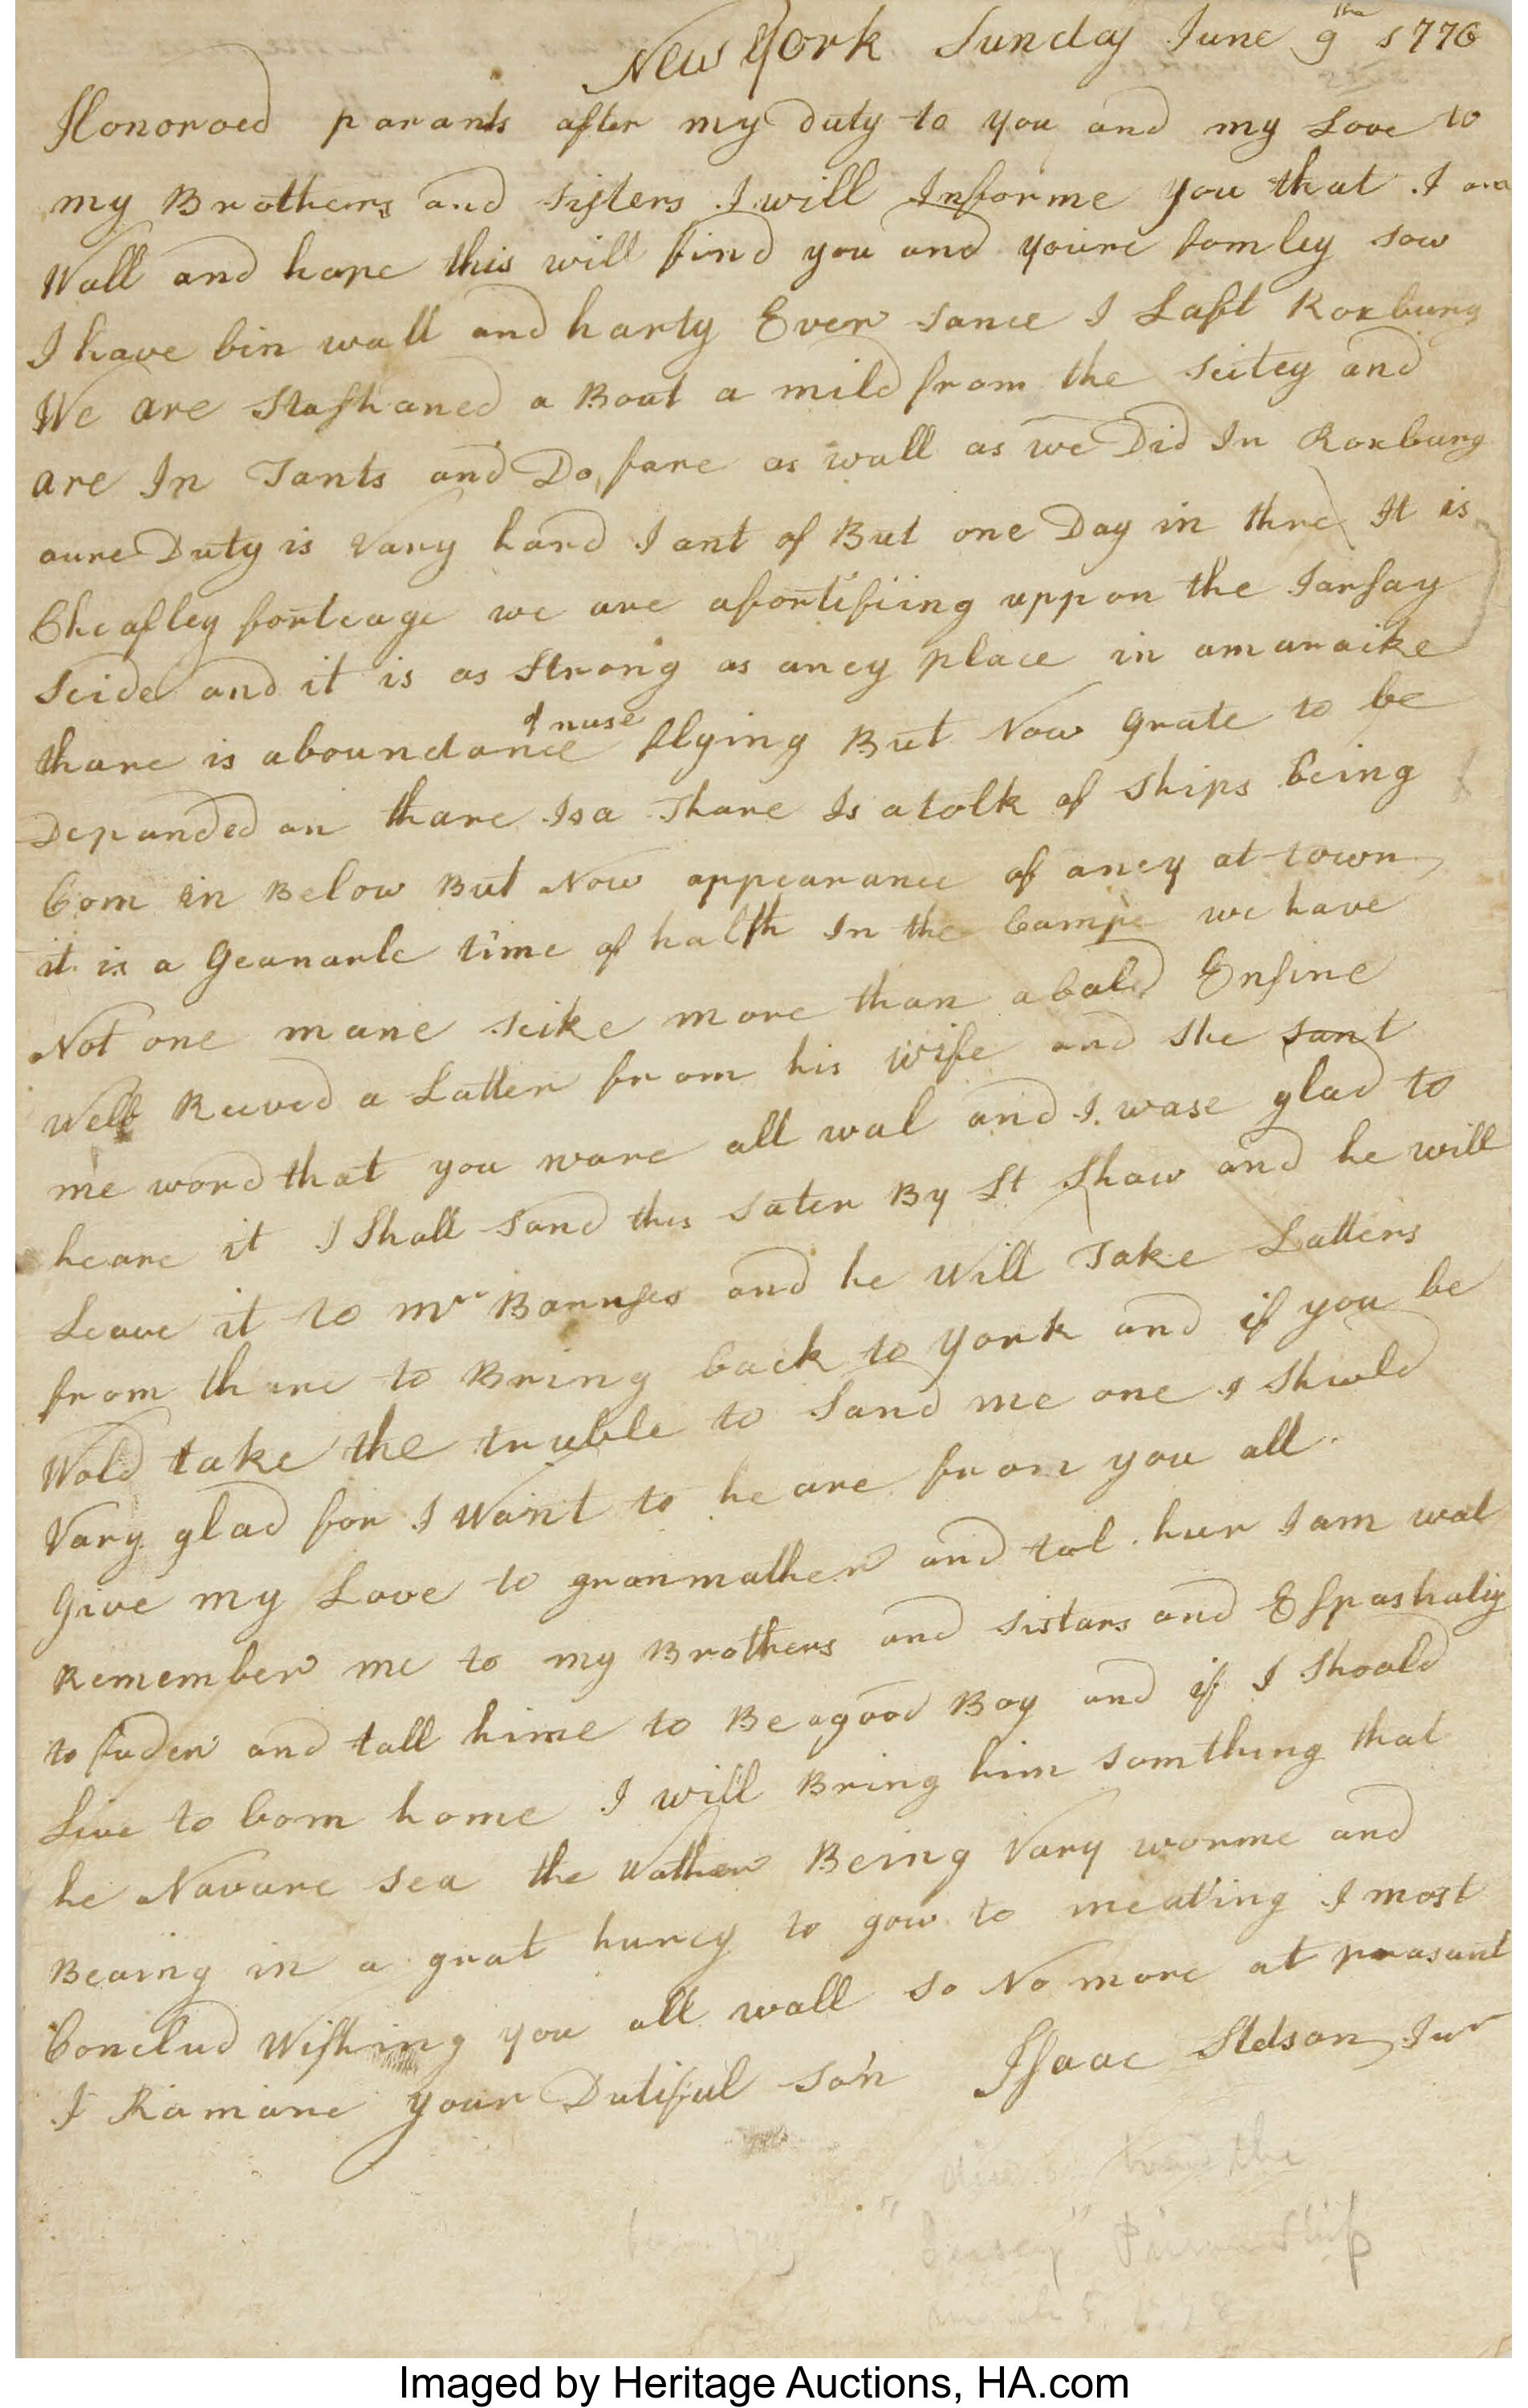 New York Sunday June 9th 1776
Honoroed parants after my duty to you and my Love to
my Brothers and sisters I will Informe you that I am
Wall and hope this will find you and youre famley sow
I have bin wall and harty Ever sance I Laft Roxburg
We are Stashaned a Bout a mild from the scitey and
are In Tants and Do fare as wall as we Did In Roxburg
oure Duty is Vary hard I ant of But one Day in thre It is
Cheafley forteage we are afortifiing uppon the Jarsay
scide and it is as Strong as aney place in amaraike
thare is aboundance of nuse flying But Now grate to be
Depanded on thare Is a Thare Is a talk of ships being
Com in Below But Now appearance of aney at town
it is a Geanarle time of halth In the Campe we have
Not one mane scike more than abald Ensine
Well Receved a Latter from his wife and she sant
me word that you ware all wal and I wase glad to
heare it I Shall sand this Later By Lt Shaw and he will
Leave it to Mr Barnses and he will Take Latters
from thare to Bring back to york and if you be
Wold take the truble to sand me one I shuld
Vary glad for I want to heare from you all
Give my Love to granmather and tal hur I am wal
Remember me to my Brothers and sistars and Espashaliy
to and tall hime to Be a good Boy and if I shoald
Live to Com home I will Bring him somthing that
he Navare sea the wather Being Vary worme and
Beaing in a grat hurey to gow to meating I most
Conclud Wishing you all wall so No more at prasant
I Ramane your Dutiful son Isaac Stdson Jur
the
"Jersey" Prison Ship
Imaged by Heritage Auctions, HA.com